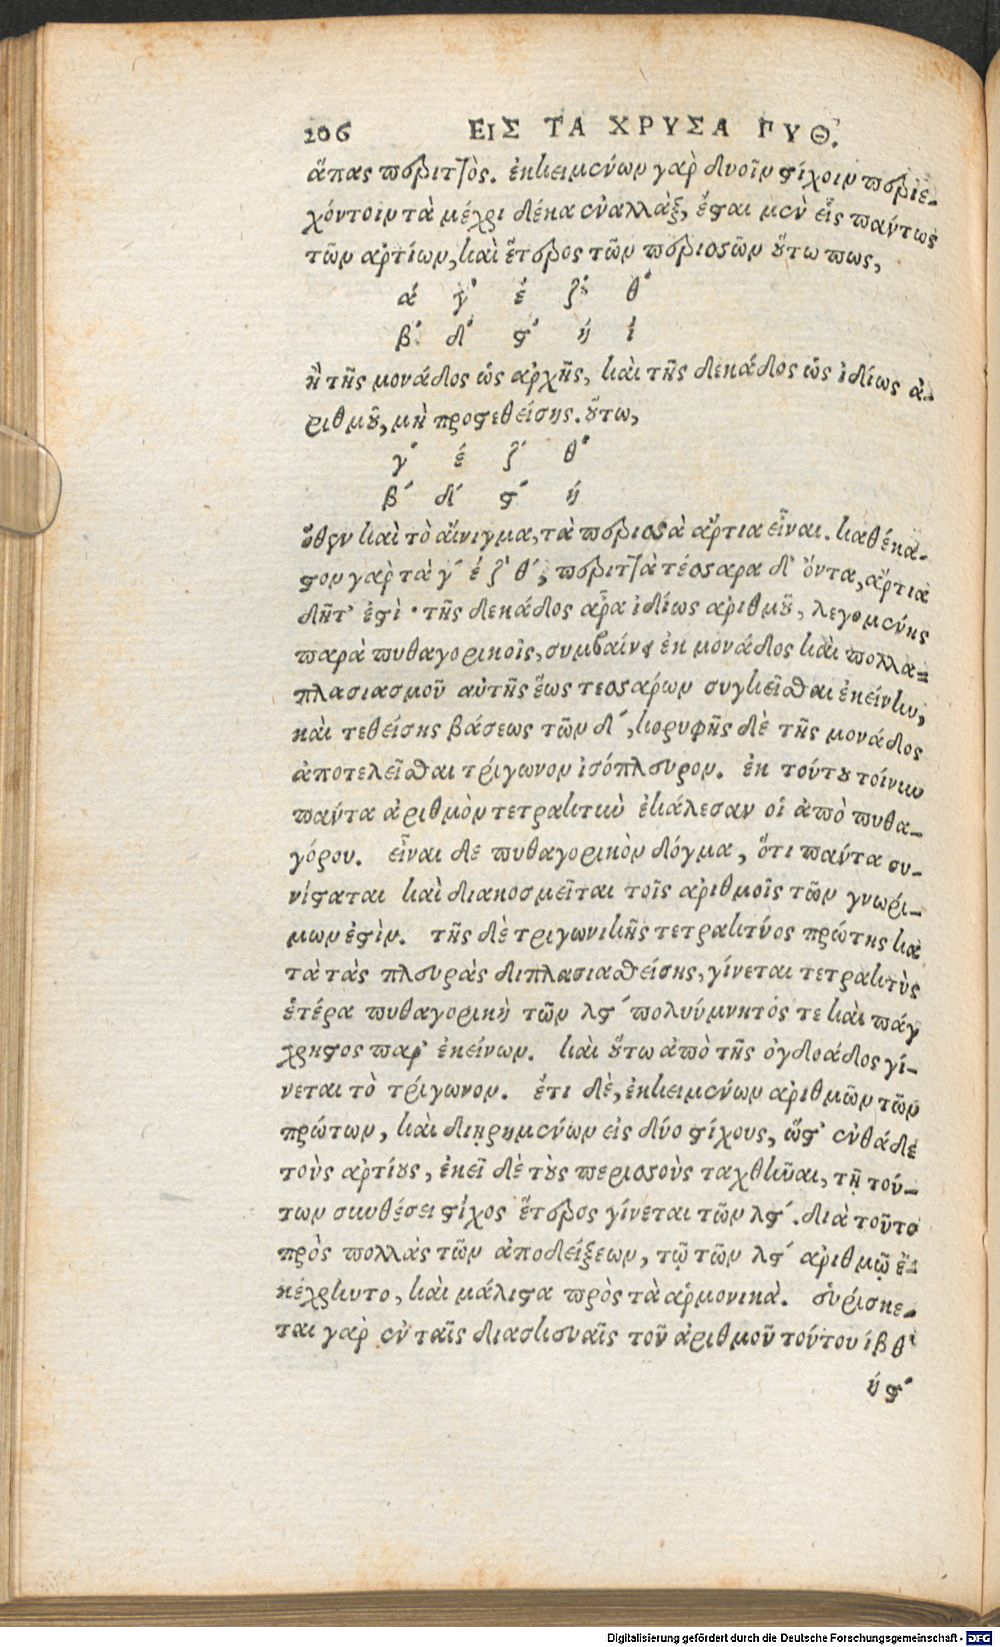 106 ΕΙΣ ΤΑ ΧΡΥΣΑ ΠΥΘ.
ἅπας περιττὸς. ἐκκειμένων γὰρ δυοῖν στίχοιν περιε-
χόντοιν τὰ μέχρι δέκα ἐναλλὰξ, ἔσται μὲν εἷς παντως
τῶν ἀρτίων, καὶ ἕτερος τῶν περισσῶν οὕτω πως,
ά γ´ έ ζ´ θ´
β´ δ´ ϛ´ ή ί
ἢ τῆς μονάδος ὡς ἀρχῆς, καὶ τῆς δεκάδος ὡς ἰδίως ἀ-
ριθμοῦ, μὴ προστεθείσης. οὕτω,
γ´ έ ζ´ θ´
β´ δ´ ϛ´ ή
ὅθεν καὶ τὸ αἴνιγμα, τὰ περισσὰ ἄρτια εἶναι. καθέκα-
στον γὰρ τὰ γ´ έ ζ´ θ´, περιττὰ τέσσαρα δ´ ὄντα, ἄρτια
δῆτ' ἐστὶ· τῆς δεκάδος ἄρα ἰδίως ἀριθμοῦ, λεγομένης
παρὰ πυθαγορικοῖς, συμβαίνει ἐκ μονάδος καὶ πολλα-
πλασιασμοῦ αὐτῆς ἕως τεσσάρων συγκεῖσθαι ἐκείνην,
καὶ τεθείσης βάσεως τῶν δ´, κορυφῆς δὲ τῆς μονάδος
ἀποτελεῖσθαι τρίγωνον ἰσόπλευρον. ἐκ τούτου τοίνυν
παντα ἀριθμὸν τετρακτὺν ἐκάλεσαν οἱ ἀπὸ πυθα-
γόρου. εἶναι δὲ πυθαγορικὸν δόγμα, ὅτι παντα συ-
νίσταται καὶ διακοσμεῖται τοῖς ἀριθμοῖς τῶν γνωρί-
μων ἐστὶν. τῆς δὲ τριγωνικῆς τετρακτύος πρώτης κα
τὰ τὰς πλευρὰς διπλασιασθείσης, γίνεται τετρακτὺς
ἑτέρα πυθαγορικὴ τῶν λϛ´ πολυύμνητός τε καὶ πάγ
χρηστος παρ' ἐκείνων. καὶ οὕτω ἀπὸ τῆς ὀγδοάδος γί-
νεται τὸ τρίγωνον. ἔτι δὲ, ἐκκειμένων ἀριθμῶν τῶν
πρώτων, καὶ διῃρημένων εἰς δύο στίχους, ὥστ' ἐνθάδε
τοὺς ἀρτίους, ἐκεῖ δὲ τοὺς περισσοὺς ταχθῆναι, τῇ τού-
των συνθέσει στίχος ἕτερος γίνεται τῶν λϛ´. διὰ τοῦτο
πρὸς πολλὰς τῶν ἀποδείξεων, τῷ τῶν λϛ´ ἀριθμῷ ἐ-
κέχρηντο, καὶ μάλιστα πρὸς τὰ ἁρμονικὰ. εὑρίσκε-
ται γὰρ ἐν ταῖς διασκευαῖς τοῦ ἀριθμοῦ τούτου ίβ θ´
ή ϛ´
Digitalisierung gefördert durch die Deutsche Forschungsgemeinschaft - DFG